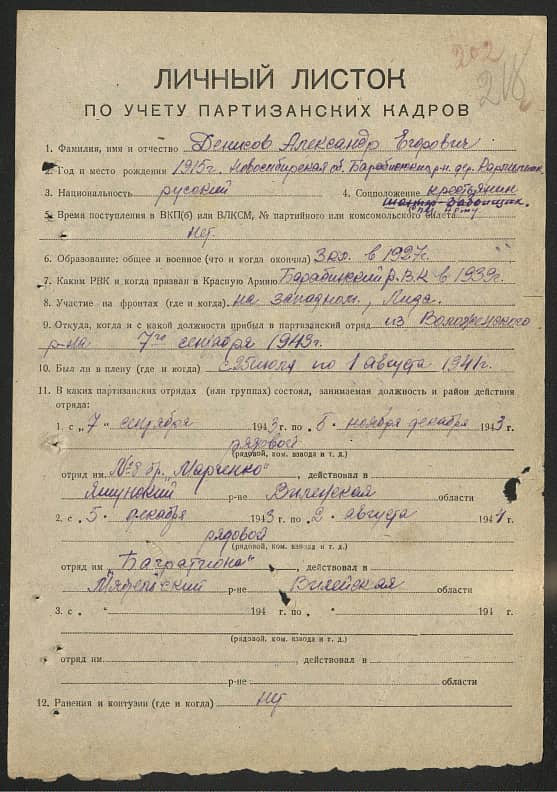 202
218
ЛИЧНЫЙ ЛИСТОК
ПО УЧЕТУ ПАРТИЗАНСКИХ КАДРОВ
1. Фамилия, имя и отчество Денисов Александр Егорович
2. Год и место рождения 1915г. Новосибирская об. Барабинский рн. дер.
3. Национальность русский 4. Соцположение крестьянин
5. Время поступления в ВКП(б) или ВЛКСМ, № партийного или комсомольского билета
Нет.
6. Образование: общее и военное (что и когда окончил) 3 кл. в 1927г.
7. Каким РВК и когда призван в Красную Армию Барабинский Р.В.К в 1939г.
8. Участие на фронтах (где и когда) на западном, Лида.
9. Откуда, когда и с какой должности прибыл в партизанский отряд из
р-на 7го сентября 1943г.
10. Был ли в плену (где и когда) с 25 июля по 1 августа 1941г.
11. В каких партизанских отрядах (или группах) состоял, занимаемая должность и район действия
отряда:
1. с „7“ сентября 1943 г. по „5 ноября декабря 1943г.
рядовой
(рядовой, ком. взвода и т. д.)
отряд им. №8 бр. „Марченко“, действовал в
Яшунский р-не Виленская области
2. с „5 декабря 1943 г. по „2 августа 1944г.
рядовой
(рядовой, ком. взвода и т. д.)
отряд им „Багратиона“, действовал в
Мядельский р-не Вилейская области
3. с „ 194 г. по „ 194 г.
(рядовой, ком. взвода и т. д.)
отряд им. , действовал в
р-не области
12. Ранения и контузии (где и когда) нет